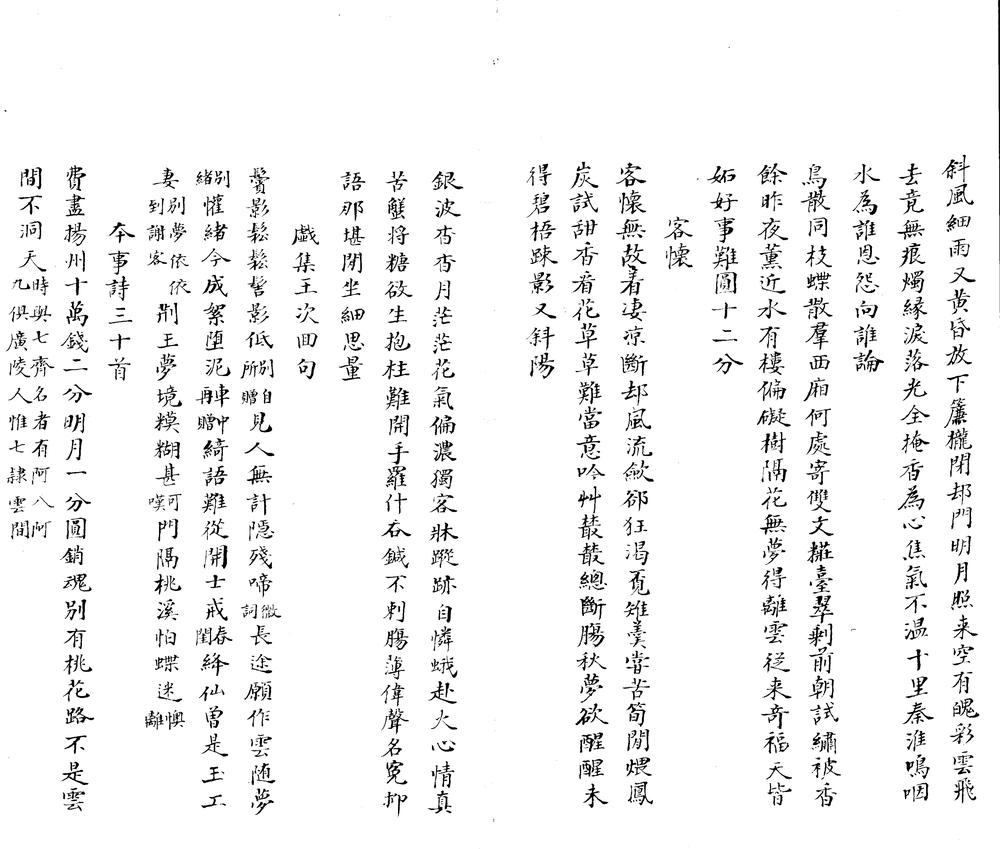 斜風細雨又黃昏放下簾櫳閉却門明月照来空有魄彩雲飛
去竟無痕燭緣淚落光全掩香為心焦氣不温十里秦淮嗚咽
水為誰恩怨向誰論
鳥散同枝蝶散羣西廂何處寄雙文糚臺翠剩前朝試繡被香
餘昨夜薰近水有樓偏礙樹隔花無夢得離雲従来奇福天皆
妬好事難圓十二分
客懷
客懷無故着凄凉斷却風流斂郤狂渴覓雉羹嘗苦筍閒煨鳳
炭試甜香看花草草難當意吟艸叢叢總斷膓秋夢欲醒醒未
得碧梧踈影又斜陽
銀波杳杳月茫茫花氣偏濃獨客牀蹤跡自憐蛾赴火心情真
苦蟹将糖欲生抱柱難開手羅什吞鍼不刺膓薄倖聲名寃抑
語那堪閉坐細思量
戯集王次回句
鬢影鬆鬆髻影低別自所贈見人無計隠殘啼微詞長途願作雲随夢
別緒懽緒今成絮堕泥車中再贈綺語難從開士戒春閨絳仙曽是玉工
妻別夢依依到謝客荆王夢境糢糊甚可嘆門隔桃溪怕蝶迷懊離
本事詩三十首
費盡揚州十萬錢二分明月一分圓銷魂別有桃花路不是雲
間不洞天時與七齊名者有阿八阿九俱廣陵人惟七隷雲間